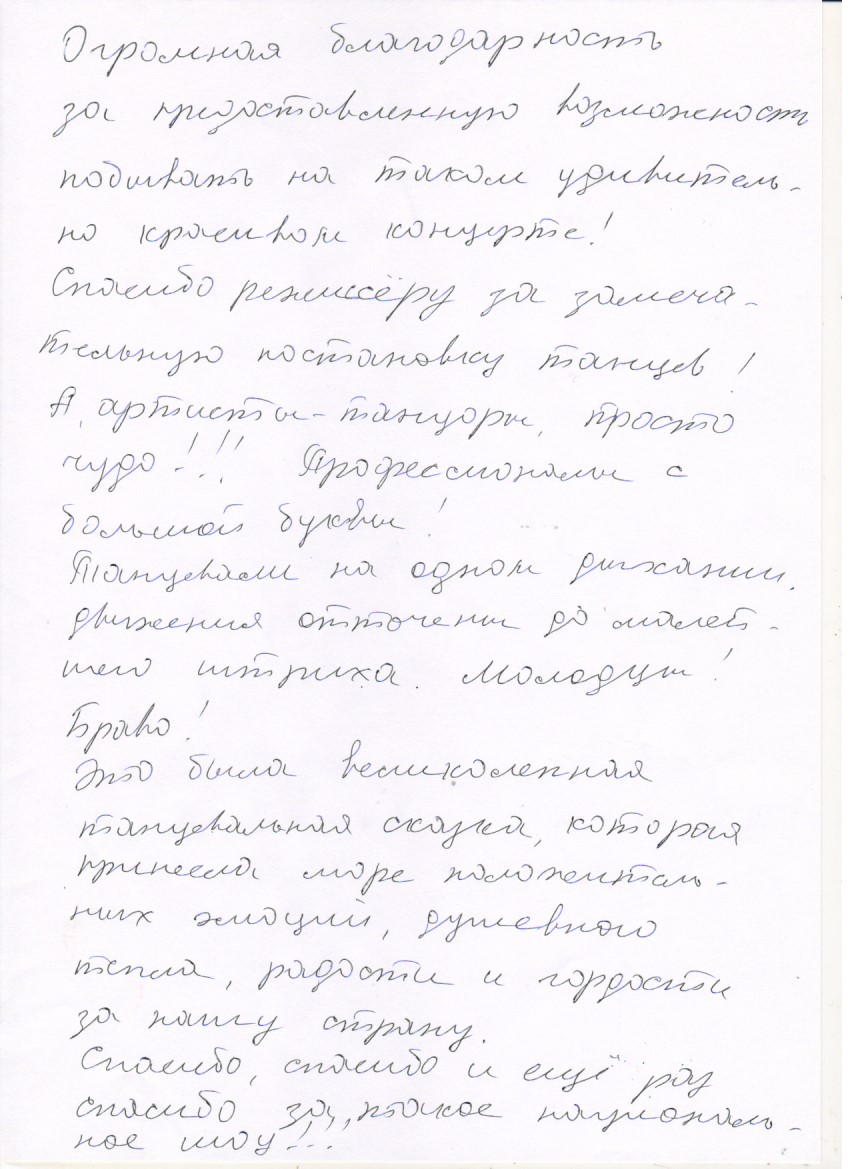 Огромная благодарность
за предоставленную возможность
побывать на таком удивитель-
но красивом концерте!
Спасибо режиссёру за замеча-
тельную постановку танцев!
А, артисты-танцоры, просто
чудо!!! Профессионалы с
большой буквы!
Танцевали на одном дыхании,
движения отточены до малей-
шего штриха. Молодцы!
Браво!
Это была великолепная
танцевальная сказка, которая
принесла море положитель-
ных эмоций, душевного
тепла, радости и гордости
за нашу страну.
Спасибо, спасибо и ещё раз
спасибо за, такое националь-
ное шоу!!!